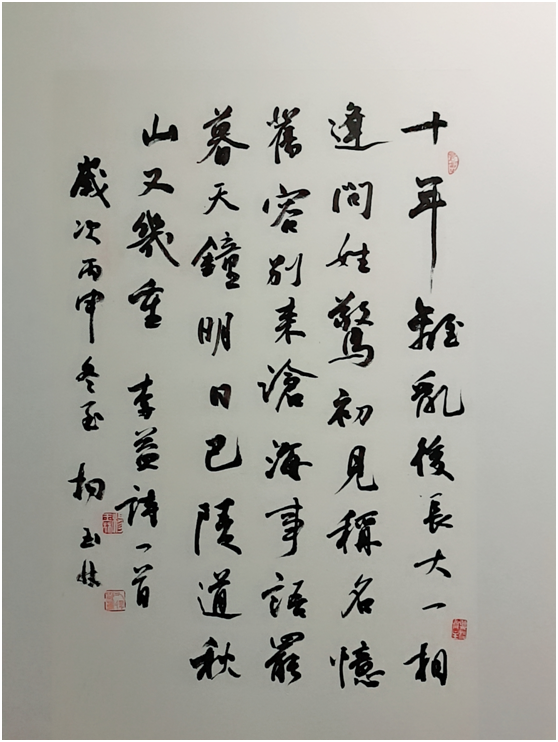 十年離亂後長大一相
逢問姓驚初見稱名憶
舊容别来滄海事語罷
暮天鐘明日巴陵道秋
山又幾重 李益詩一首
歲次丙申冬至 玉林